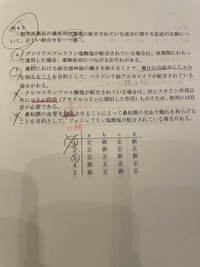 問48
一般用医薬品の鼻炎用内服薬に配合されている成分に関する記述の正誤につ
いて、正しい組合せを一つ選べ。
a プソイドエフェドリン塩酸塩が配合されている場合は、長期間にわたっ
て連用した場合、薬物依存につながるおそれがある。
b 鼻腔における副交感神経の働きを抑えることで、鼻汁の分泌やくしゃみ
を抑えることを目的として、ベラドンナ総アルカロイドが配合されている
場合がある。
c クレマスチンフマル酸塩が配合されている場合は、抗ヒスタミン作用以外
に作用(アセチルコリンに類似した作用)も示すため、使用には注
意が必要である。
d 鼻粘膜の血管を させることによって鼻粘膜の充血や腫れを和らげる
ことを目的として、フェニレフリン塩酸塩が配合されている場合がある。
a b c d
1 正 誤 正 誤
2 正 誤 誤 正
3 正 正 誤 誤
4 誤 正 誤 正
5 誤 正 正 誤